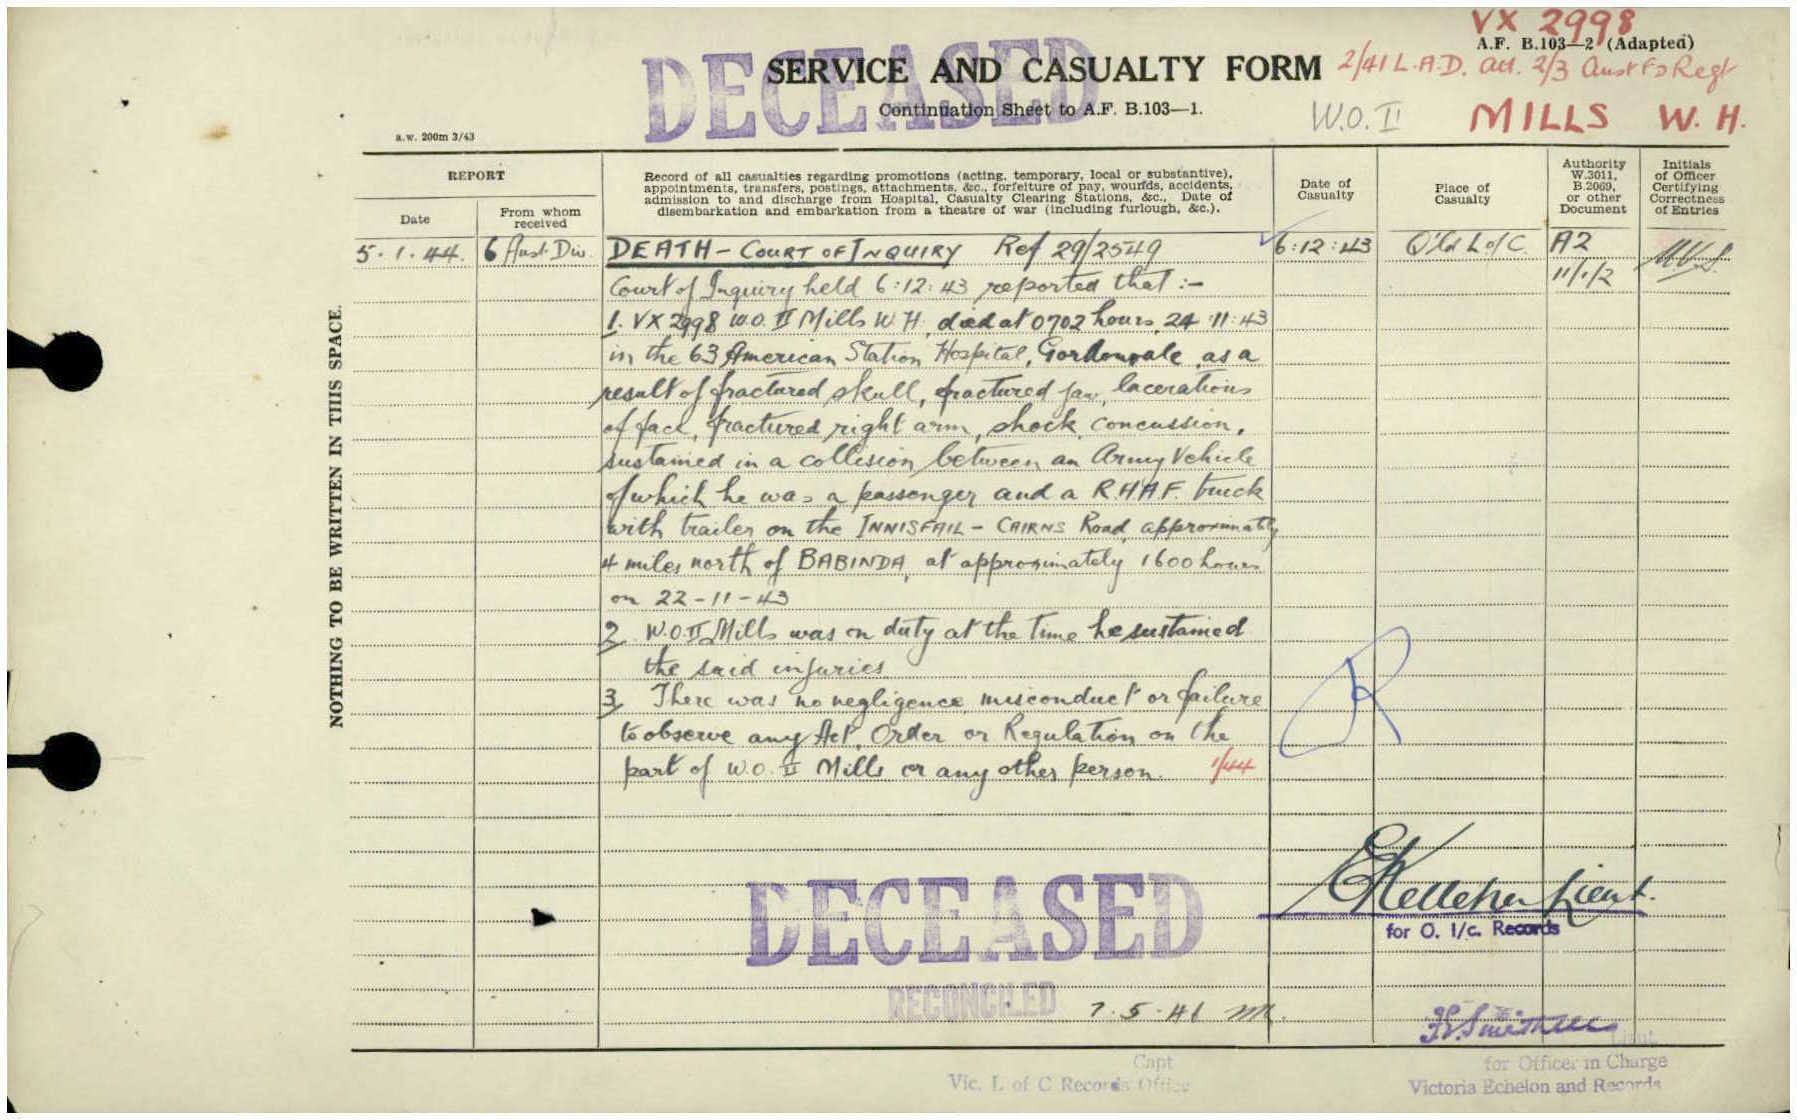 VX 2998
A.F. B.103—2 (Adapted)
DECEASED
SERVICE AND CASUALTY FORM
2/41 L.A.D. att. 2/3 Aust Fd Regt
Continuation Sheet to A.F. B.103—1.
W.O. II MILLS W. H.
a.w. 200m 3/43
NOTHING TO BE WRITTEN IN THIS SPACE.
REPORT
Date
From whom
received
Record of all casualties regarding promotions (acting, temporary, local or substantive),
appointments, transfers, postings, attachments, &c., forfeiture of pay, wounds, accidents,
admission to and discharge from Hospital, Casualty Clearing Stations, &c., Date of
disembarkation and embarkation from a theatre of war (including furlough, &c.).
Date of
Casualty
Place of
Casualty
Authority
W.3011,
B.2069,
or other
Document
Initials
of Officer
Certifying
Correctness
of Entries
5.1.44. 6 Aust. Div. DEATH – COURT OF INQUIRY Ref 29/2549 6:12:43 Q'ld L of C. A2
11/1/2
Court of Inquiry held 6:12:43 reported that :-
1. VX 2998 W.O. II Mills W H, died at 0702 hours, 24:11:43
in the 63 American Station Hospital, Gordonvale, as a
result of fractured skull, fractured jaw, lacerations
of face, fractured right arm, shock, concussion,
sustained in a collision between an Army Vehicle
of which he was a passenger and a R.A.A.F. truck
with trailer on the INNISFAIL – CAIRNS Road, approximately
4 miles north of BABINDA, at approximately 1600 hours
on 22-11-43
2 W.O. II Mills was on duty at the time he sustained
the said injuries
3 There was no negligence, misconduct or failure
to observe any Act, Order or Regulation on the
part of W.O. II Mills or any other person. 1/44
EKelleher Lieut.
for O. I/c. Records
DECEASED
RECONCILED 7.5.41
Lieut
Capt
Vic. L of C Records Office
for Officer in Charge
Victoria Echelon and Records